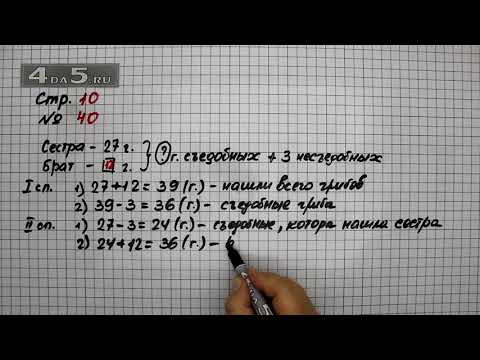 4DA5.RU
Стр. 10
№ 40
Сестра - 27 г.
Брат - г.
? г. съедобных + 3 несъедобных
I сп. 1) 27+12=39 (г.) - нашли всего грибов
2) 39-3=36 (г.) - съедобные гриба
II сп. 1) 27-3=24 (г.) - съедобные, котора нашла сестра
2) 24+12=36 (г.) -